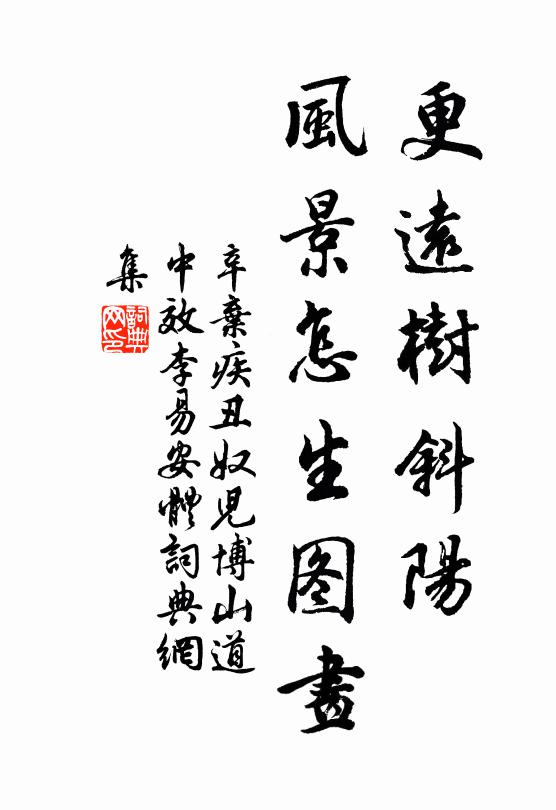 更遠樹斜陽
風景怎生图畫
辛棄疾丑奴児博山道
中效李易安體詞典網
集
詞典網印